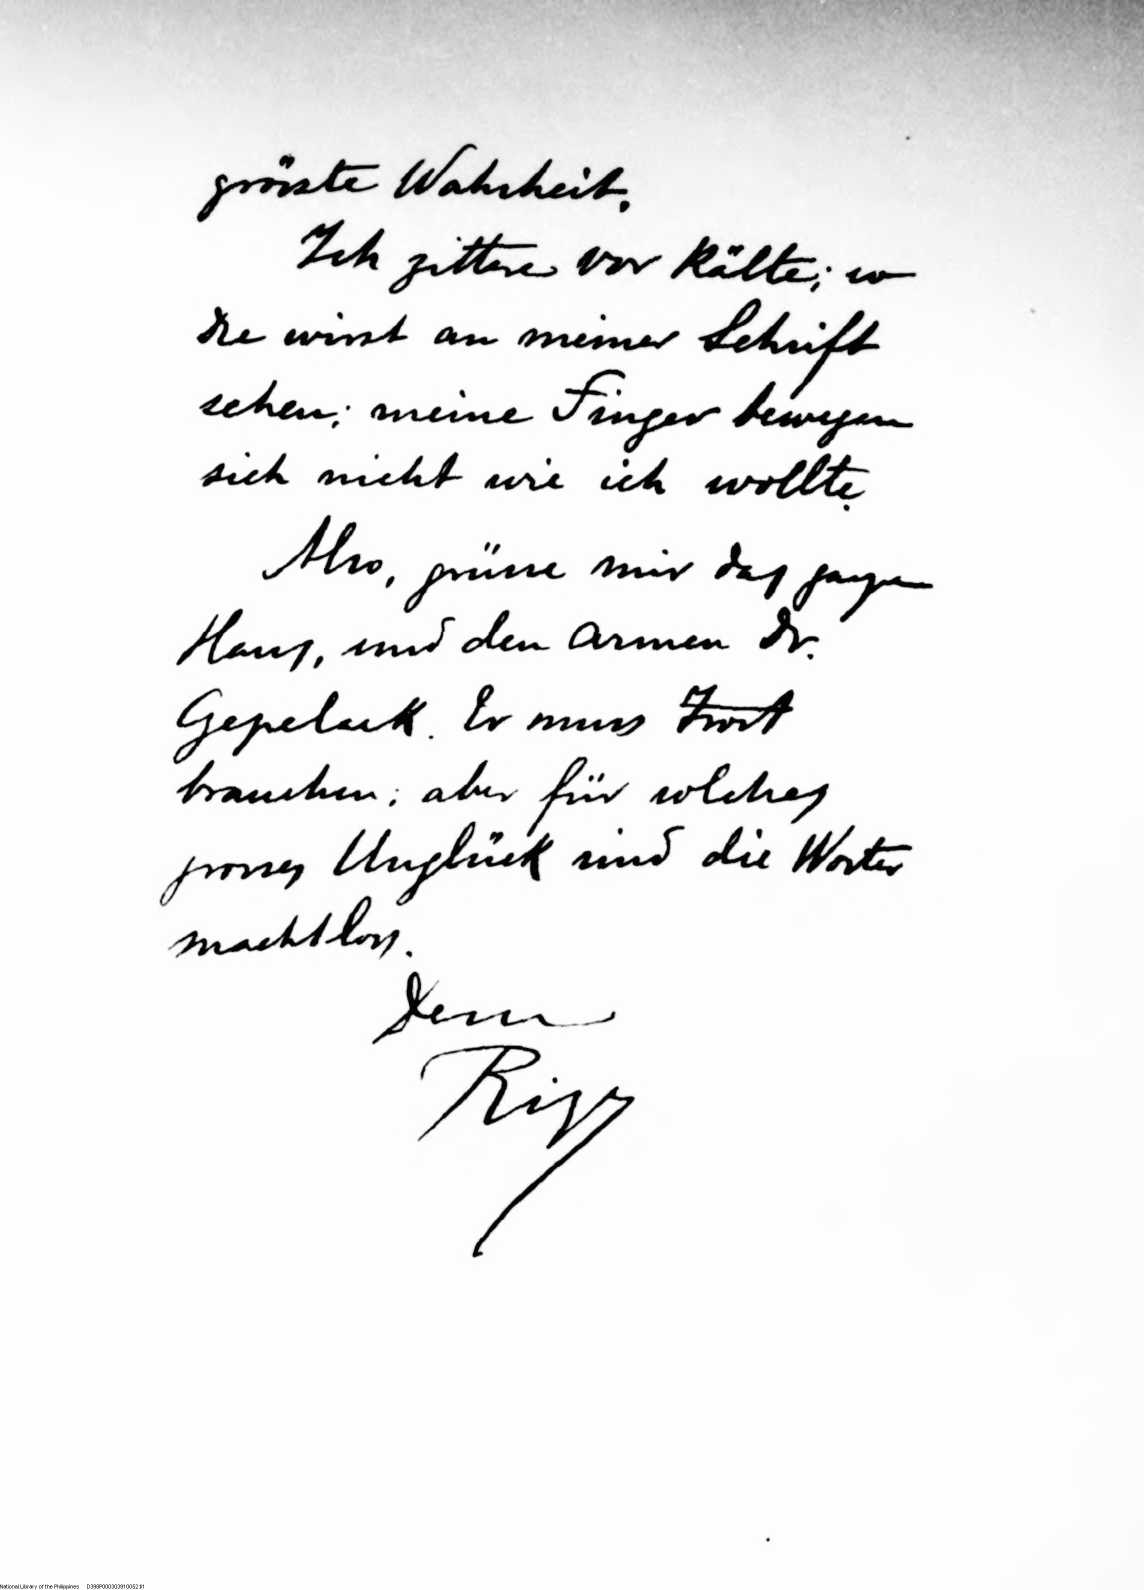 grösste Wahrheit.
Ich zittere vor Kälte; so
Du wirst an meiner Schrift
sehen; meine Finger bewegen
sich nicht wie ich wollte.
Also, grüsse mir das ganze
Haus, und den armen Dr.
Gepelack. Er muss Trost
brauchen; aber für solches
grosses Unglück sind die Worter
machtlos.
Dein
Rizal
National Library of the Philippines